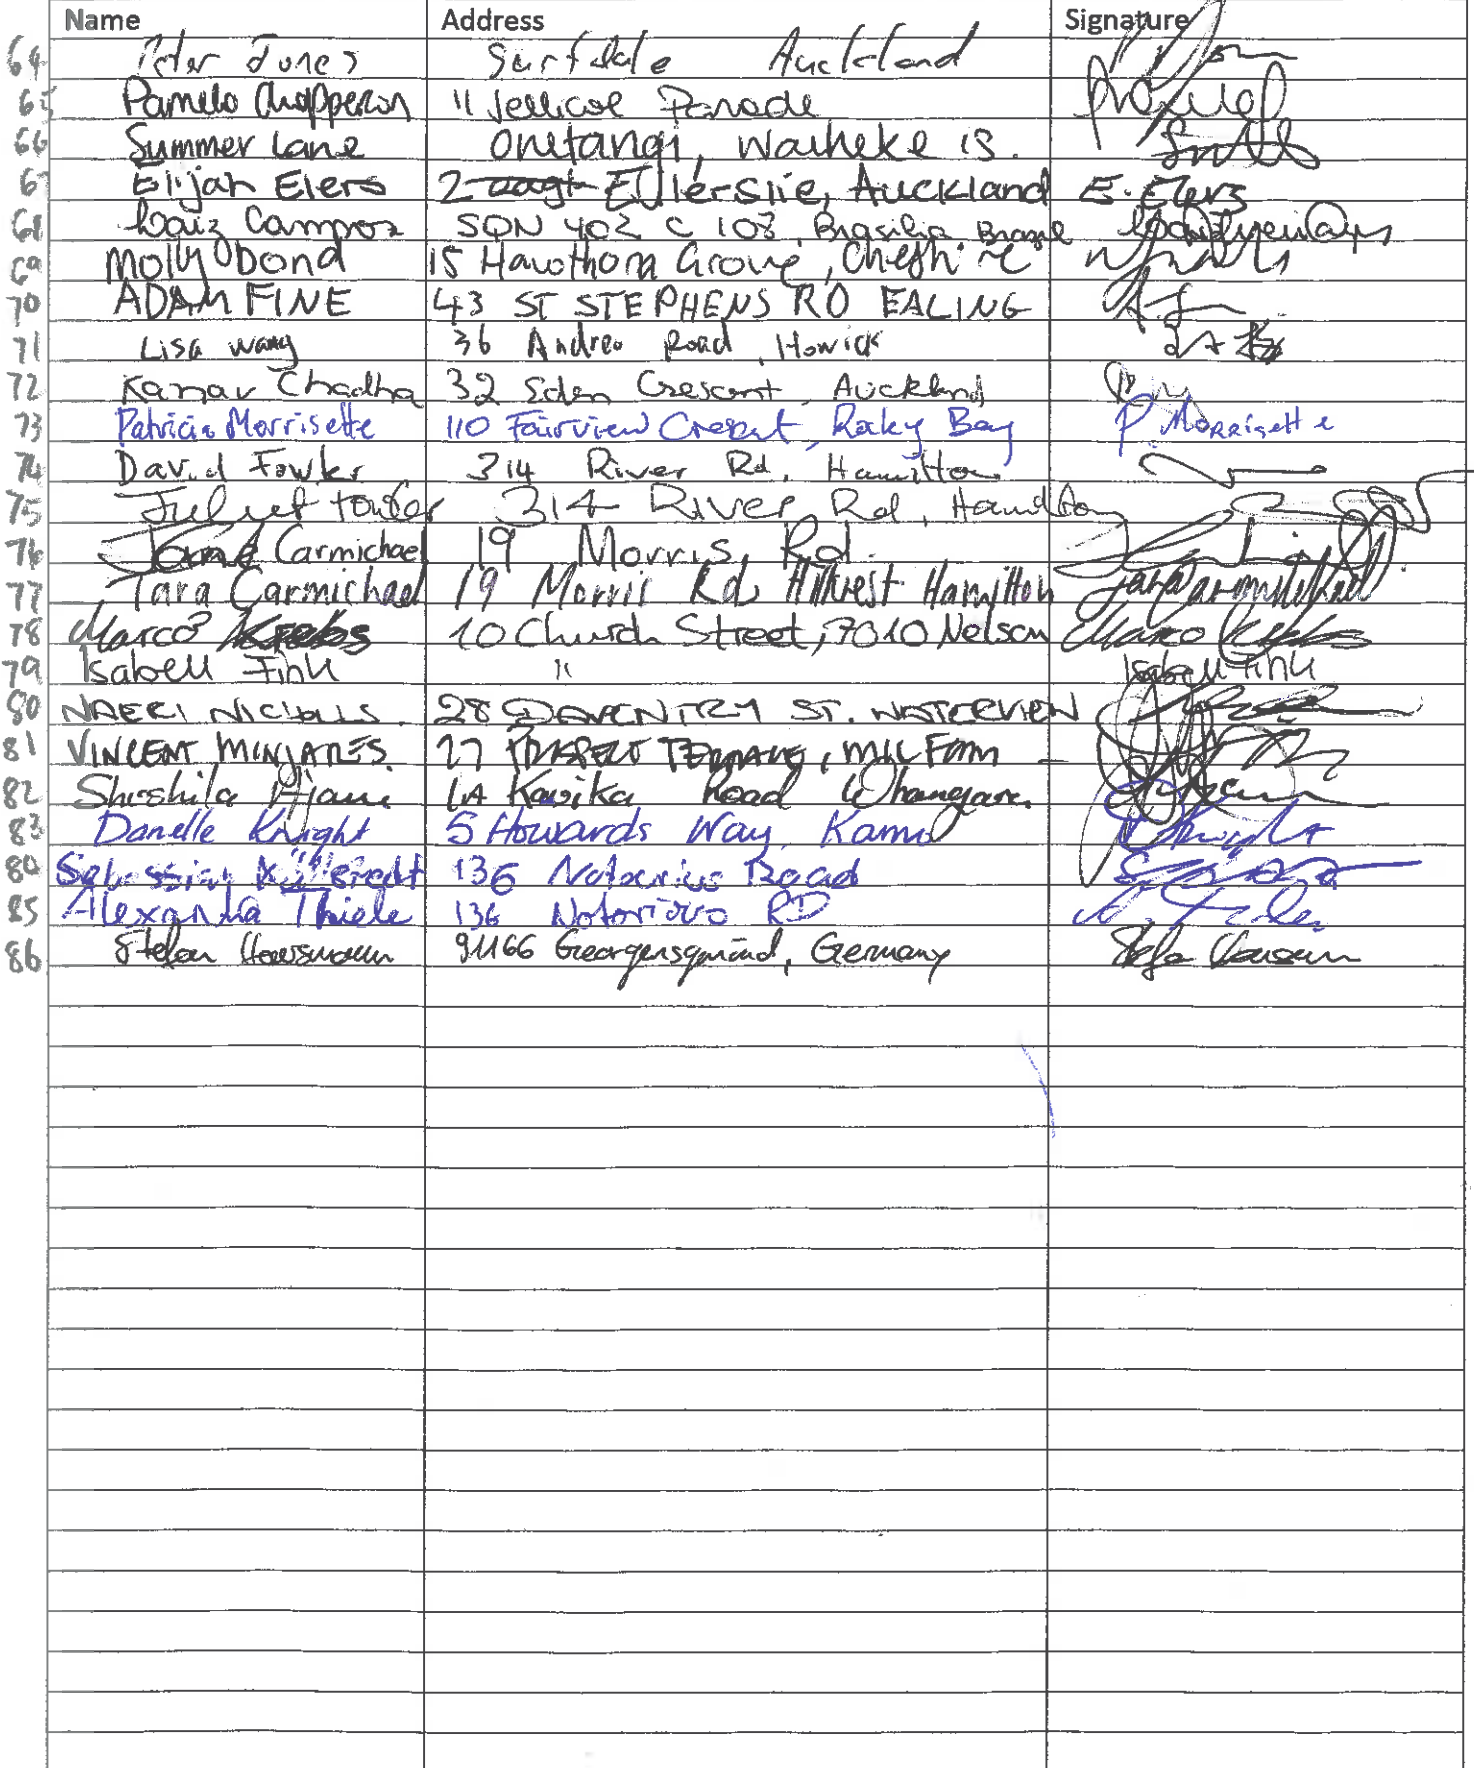 Name Address Signature
64 Peter Jones Surfdale Auckland
65 Pamela Chapperon 11 Jellicoe Parade
66 Summer Lane Onetangi, Waiheke Is.
67 Elijah Elers 2 Ellerslie, Auckland E. Elers
68 Campos SQN 402 C 108, Brasilia Brazil
69 Molly bond 15 Hawthorn Grove, Cheshire
70 ADAM FINE 43 ST STEPHENS RD EALING
71 Lisa Wang 36 Andrew Road, Howick
72 Kanav Chadha 32 Eden Crescent, Auckland
73 Patricia Morrisette 110 Fairview Cresent, Rocky Bay P. Morrisette
74 David Fowler 314 River Rd, Hamilton
75 Juliet Fowler 314 River Rd, Hamilton
76 Carmichael 19 Morris Rd.
77 Tara Carmichael 19 Morris Rd Hillcrest Hamilton Tara Carmichael
78 Marco Krebs 10 Church Street, 7010 Nelson Marco Krebs
79 Isabell Fink " Isabell Fink
80 NAERI NICHOLLS. 28 DAVENTRY ST. WATERVIEW
81 VINCENT MINJARES. 27 TERRACE, MILFORD
82 Shishila Ajani 1A Kavika Road
83 Danelle Knight 5 Howards Way, Kamo
80 136 Road
85 Alexandra Thiele 136 Notorious RD A. Thiele
86 Stefan 91166 Georgensgmünd, Germany